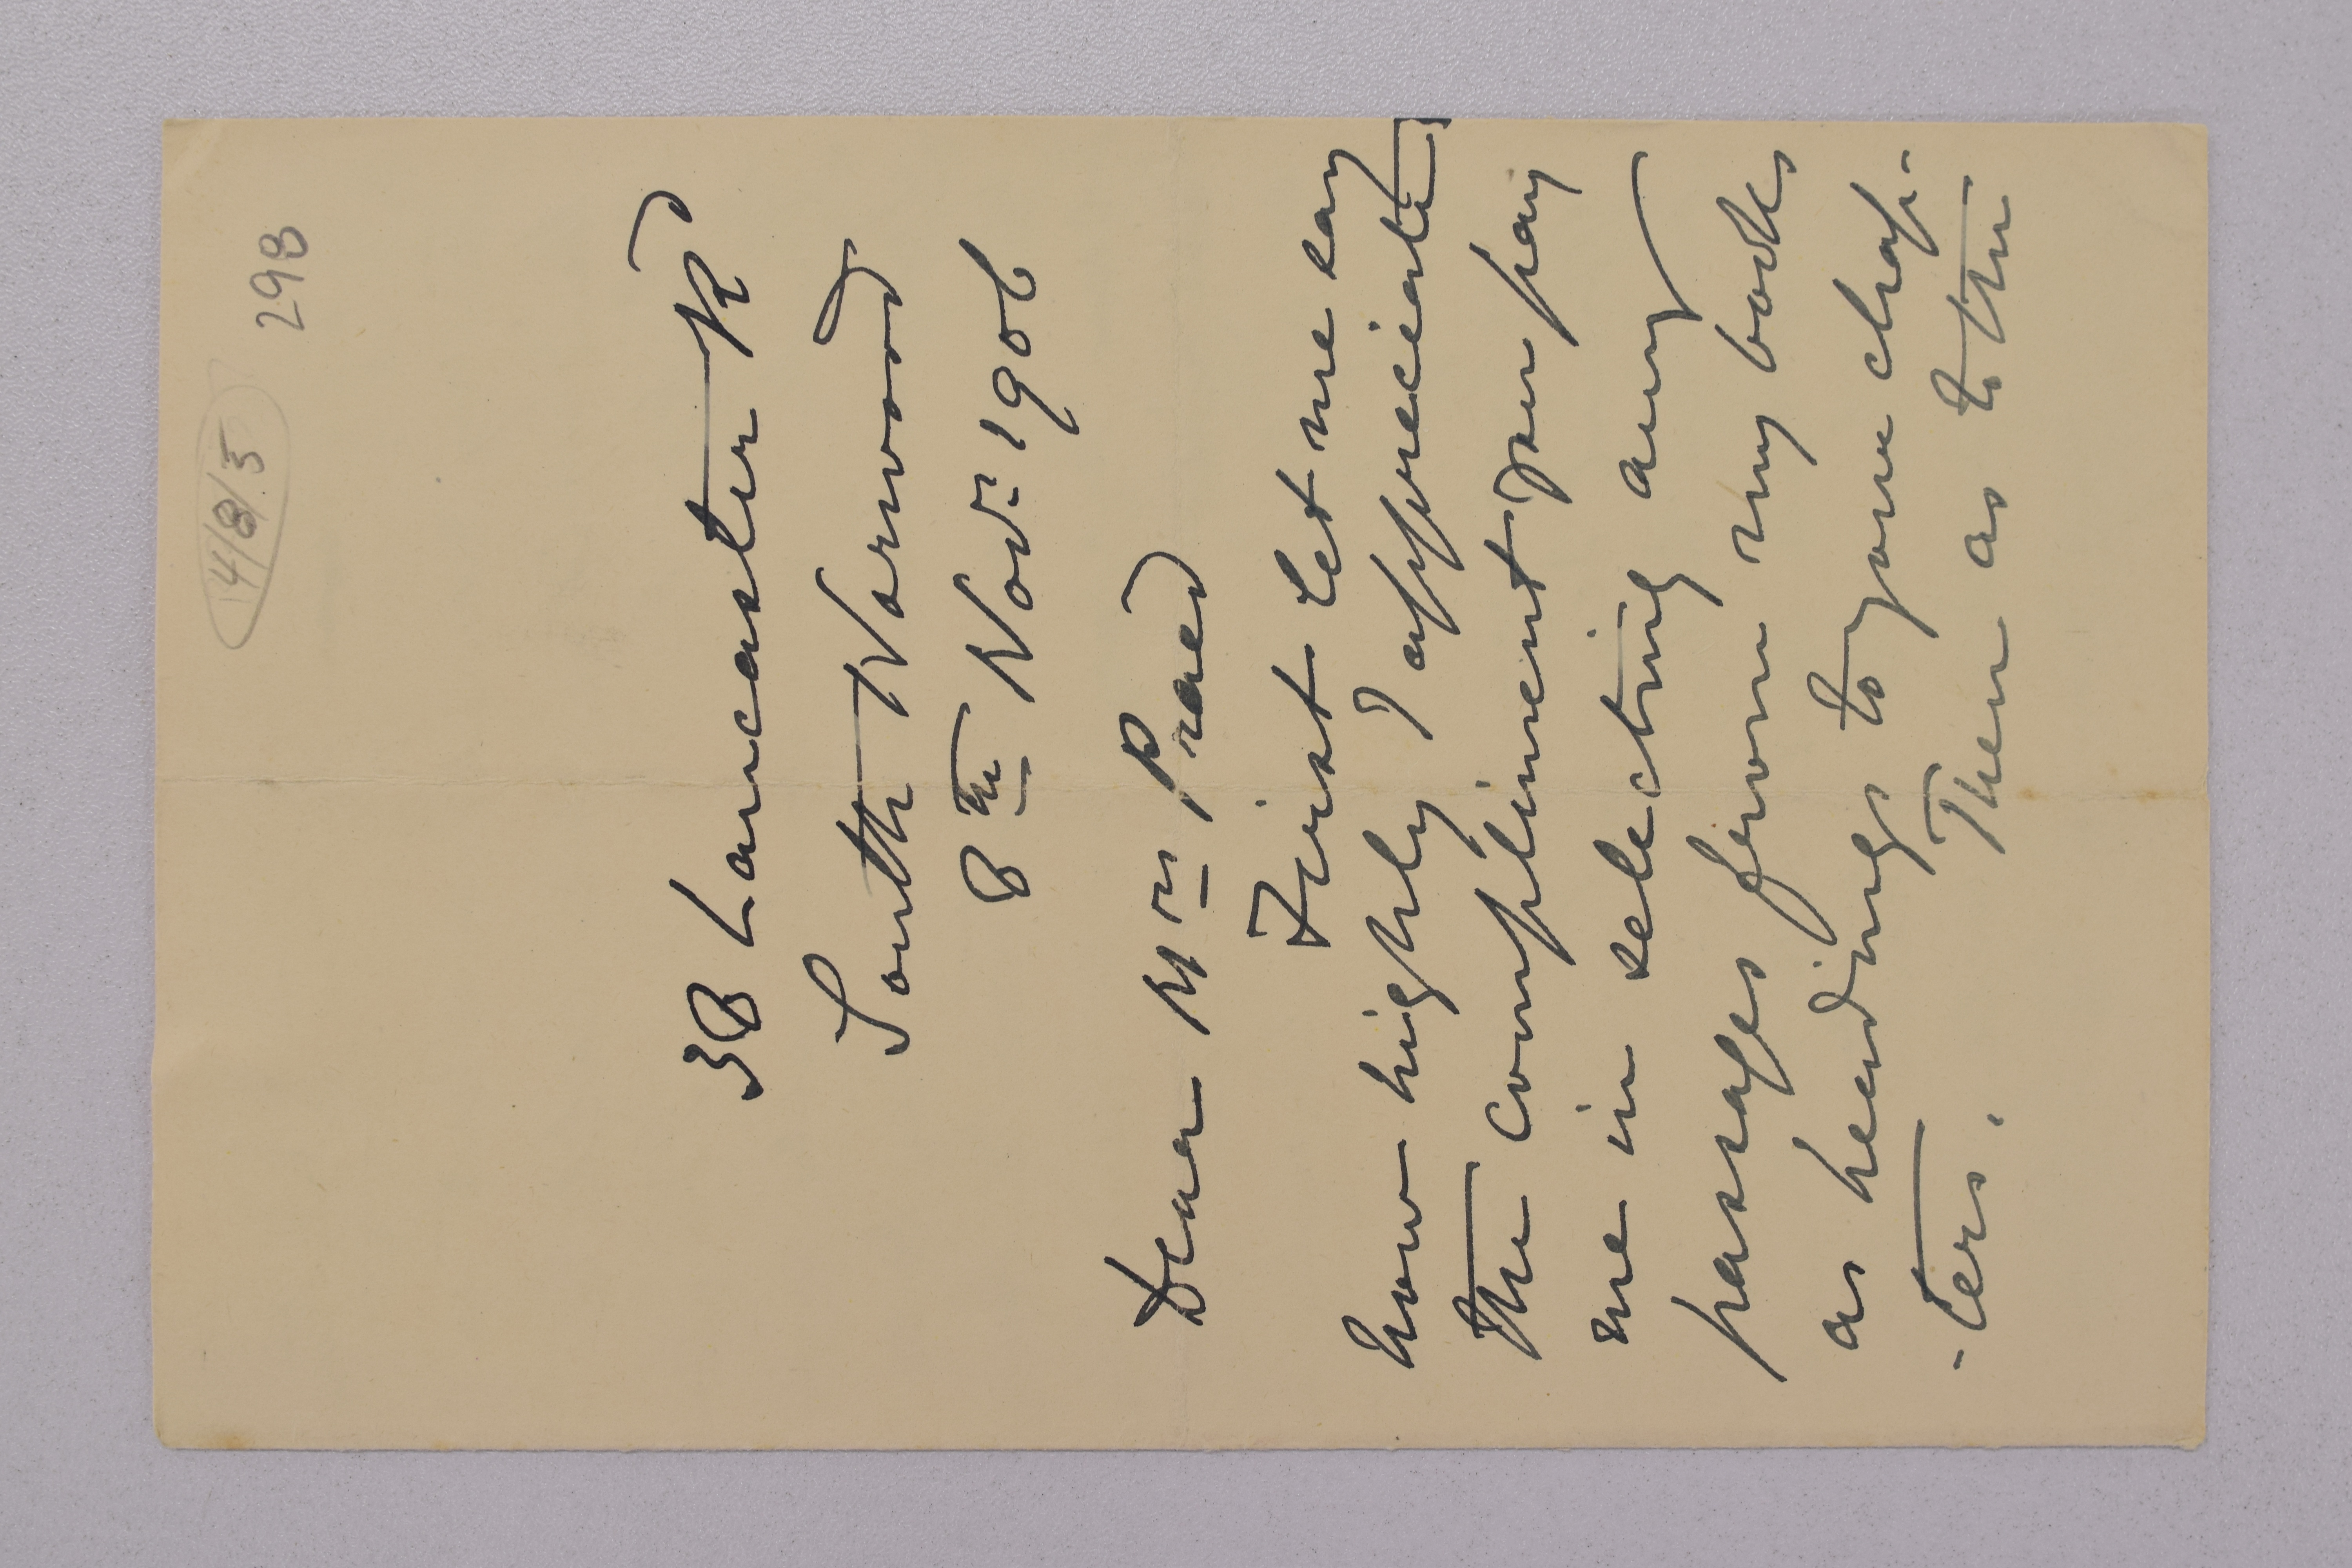 14/8/5 298
38 Lancaster Rd
South Norwood
8th Novr 1906
Dear Mrs Praed
First let me say
how highly I appreciate
the compliment you pay
me in selecting any
passages from my books
as headings to your chap-
-ters. Then as to the